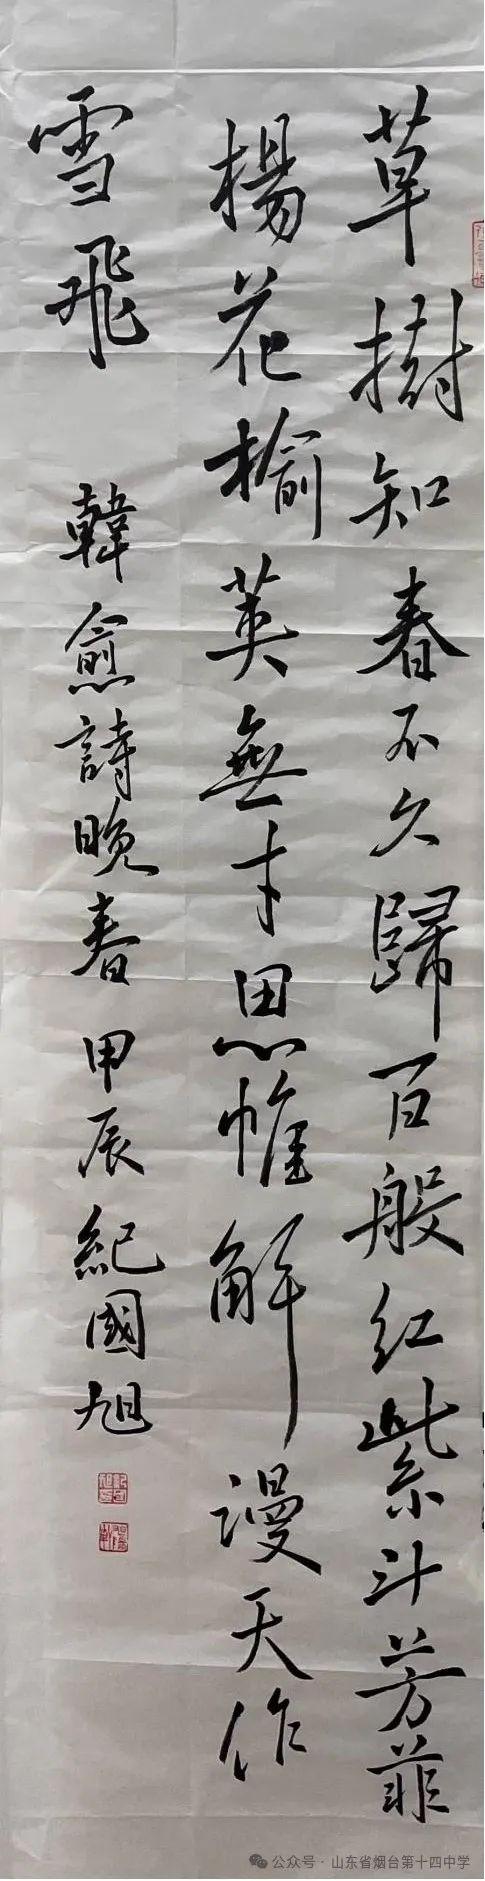 草樹知春不久歸百般紅紫斗芳菲
楊花榆荚無才思惟解漫天作
雪飛
韓愈詩晚春甲辰紀國旭
公众号·山东省烟台第十四中学